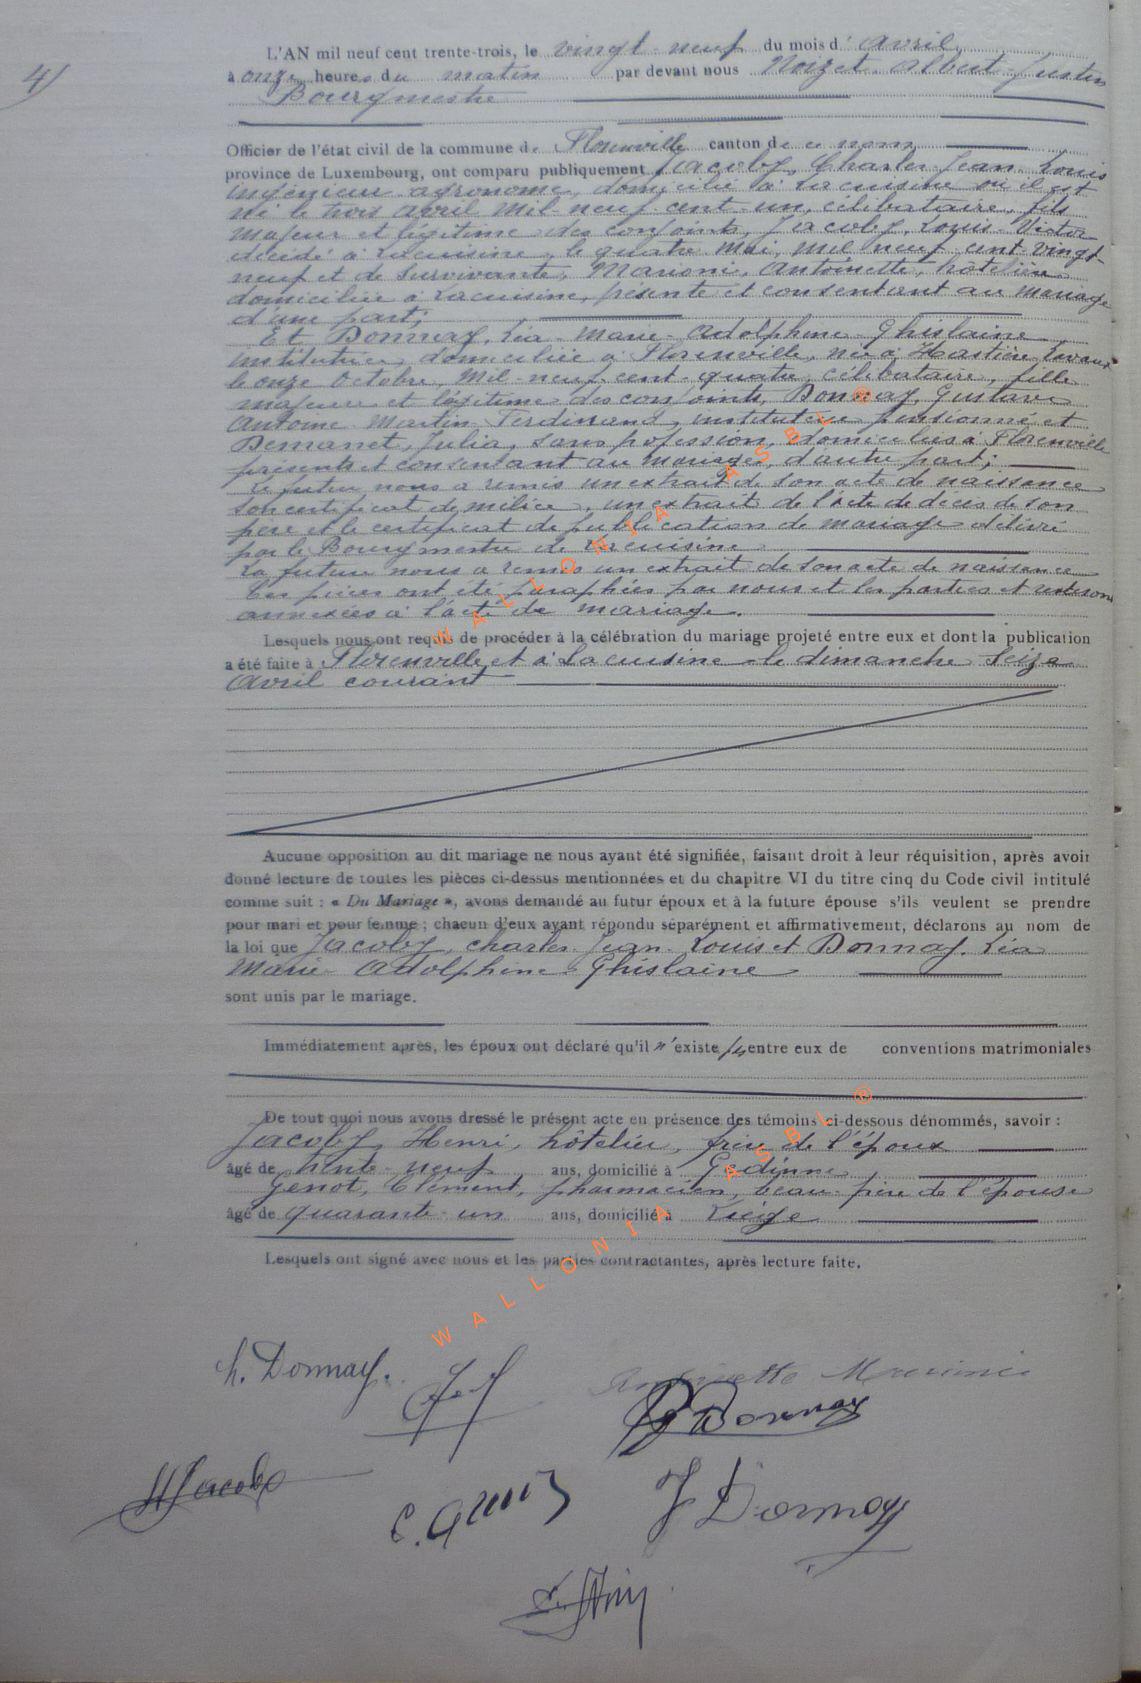 4)
L'AN mil neuf cent trente-trois, le vingt-neuf du mois d' avril,
à onze heures du matin par devant nous Nozet Albert Justin
Bourgmestre
Officier de l'état civil de la commune de Florenville canton de ce nom
province de Luxembourg, ont comparu publiquement Jacoby, Charles Jean Louis
ingénieur agronome, domicilié à Lacuisine où il est
né le trois avril mil-neuf-cent-un, célibataire, fils
majeur et légitime des conjoints, Jacoby, Louis-Victor
décédé à Lacuisine, le quatre Mai, mil neuf cent vingt-
neuf et de Survivante, Marioni, Antoinette, hôtelière
domiciliée à Lacuisine, présente et consentant au mariage
d'une part;
Et Donnay, Léa-Marie-Adolphine-Ghislaine
institutrice, domiciliée à Florenville, née à Hastière Lavaux
le onze Octobre, Mil-neuf-cent-quatre, célibataire, fille
majeure et légitime des conjoints, Donnay, Gustave
Antoine Martin Ferdinand, instituteur pensionné et
Demanet, Julia, sans profession, domiciliés à Florenville
présents et consentant au mariage, d'autre part;
Le futur nous a remis un extrait de son acte de naissance
son certificat de milice, un extrait de l'acte de décès de son
père et le certificat de publication de mariage délivré
par le Bourgmestre de Lacuisine
La future nous a remis un extrait de son acte de naissance
Ces pièces ont été paraphées par nous et les parties et
annexées à l'acte de mariage.
Lesquels nous ont requis de procéder à la célébration du mariage projeté entre eux et dont la publication
a été faite à Florenville et à Lacuisine le dimanche Seize
Avril courant
Aucune opposition au dit mariage ne nous ayant été signifiée, faisant droit à leur réquisition, après avoir
donné lecture de toutes les pièces ci-dessus mentionnées et du chapitre VI du titre cinq du Code civil intitulé
comme suit : « Du Mariage », avons demandé au futur époux et à la future épouse s'ils veulent se prendre
pour mari et pour femme ; chacun d'eux ayant répondu séparément et affirmativement, déclarons au nom de
la loi que Jacoby, Charles-Jean-Louis et Donnay, Léa
Marie-Adolphine-Ghislaine
sont unis par le mariage.
Immédiatement après, les époux ont déclaré qu'il n'existe pas entre eux de conventions matrimoniales
De tout quoi nous avons dressé le présent acte en présence des témoins ci-dessous dénommés, savoir :
Jacoby, Henri, hôtelier, frère de l'époux
âgé de trente-neuf ans, domicilié à Gedinne
Genot, Clément, pharmacien, beau-frère de l'épouse
âgé de quarante-un ans, domicilié à Liège
Lesquels ont signé avec nous et les parties contractantes, après lecture faite.
Donnay.
Antoinette Marioni
Donnay
HJacoby
J Donnay
WALLONIA ASBL ®
WALLONIA ASBL ®